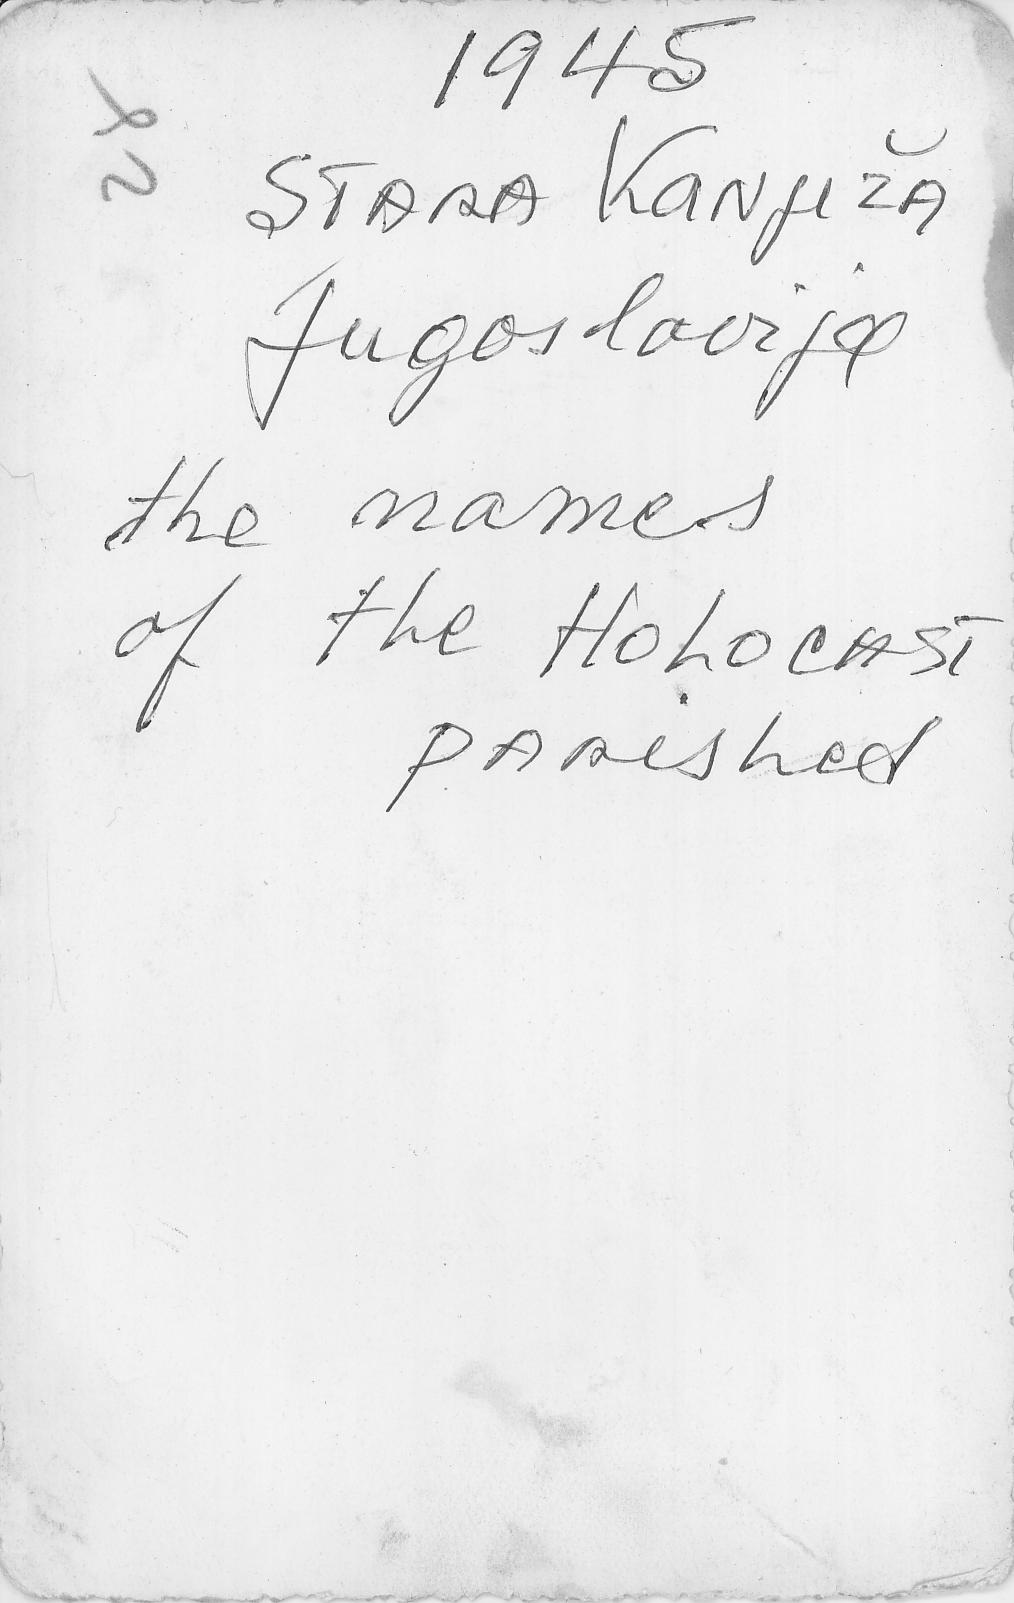 1945
STARA KANJIŽA
Jugoslavija
the names
of the HOLOCAST
PARished